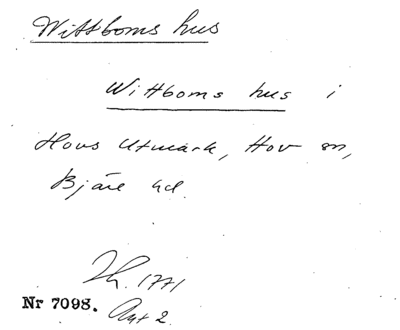 Wittboms hus
Wittboms hus i
Hovs Utmark, Hov sn,
Bjäre hd.
1771
Nr 7098.
Akt 2